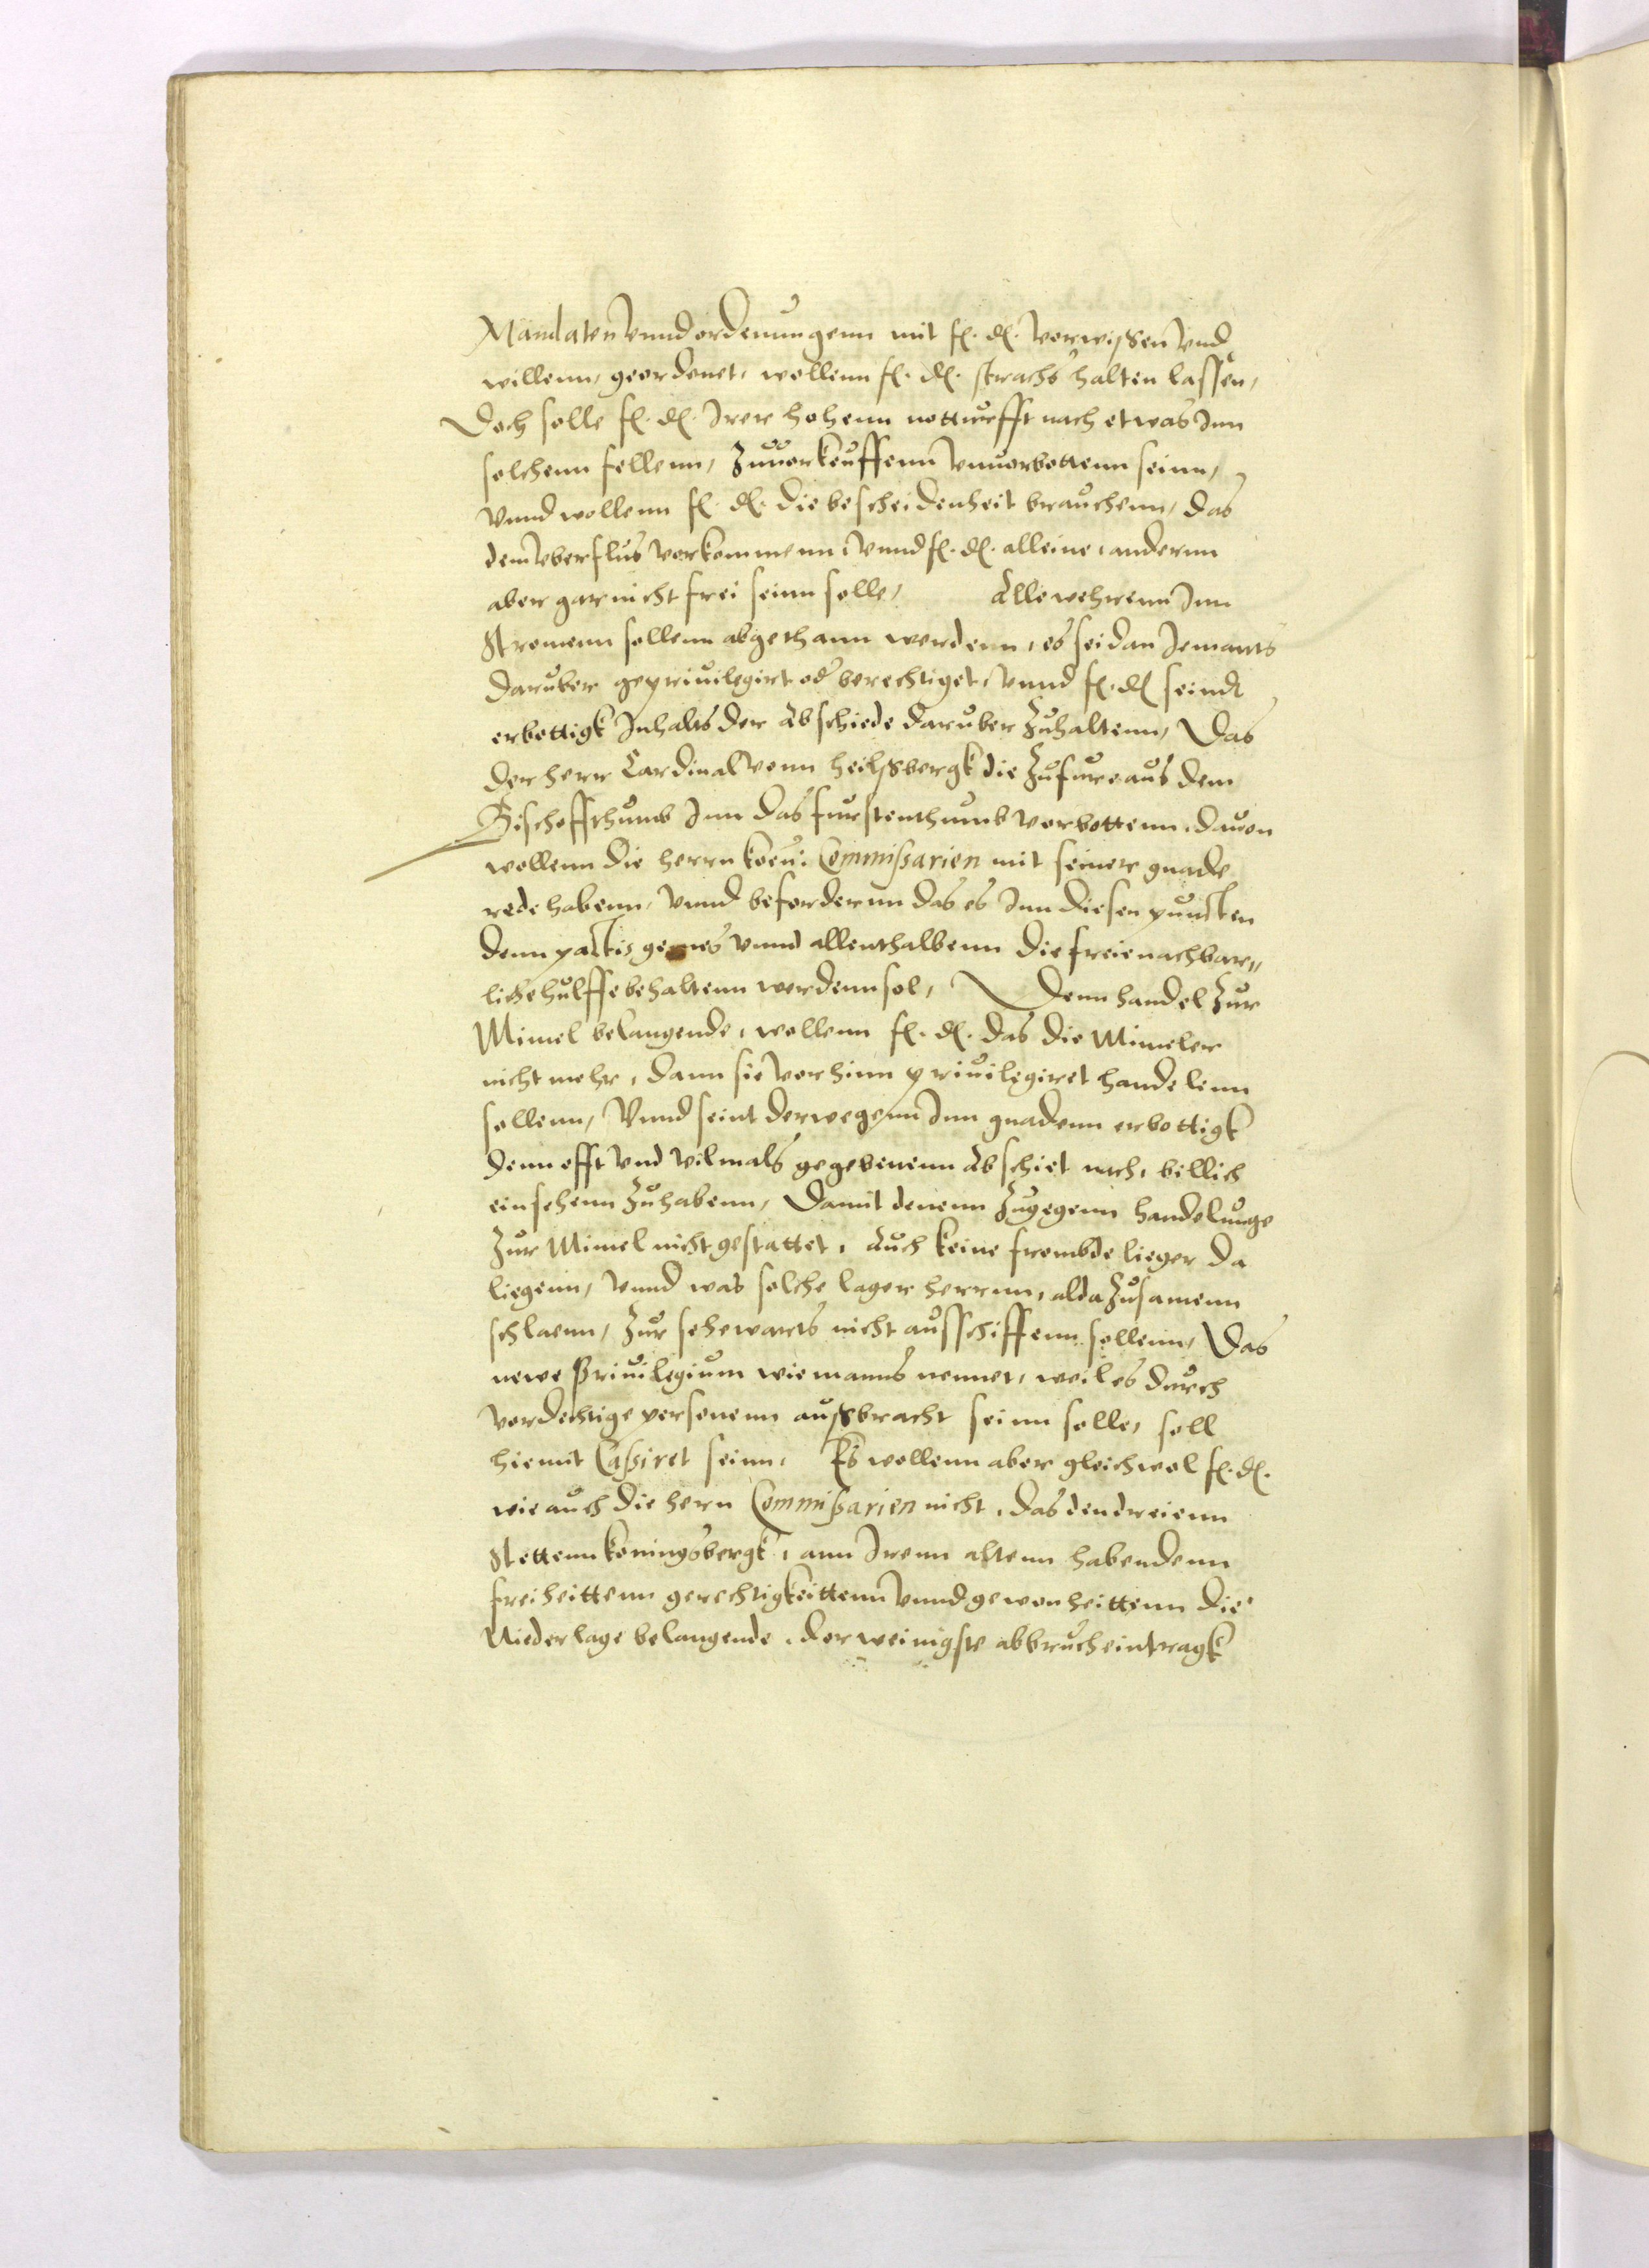 Mandaten vnnd ordenungenn mit f. d. vorwissen vnd
willenn, geordenet, wollenn f. d. stracks halten lassen,
Doch solle f. d. Irer hohenn notturfft nach etwas Inn
solchenn fellenn, zuuorkeuffenn vnuorbottenn seinn,
vnnd wollenn f. d. die bescheidenheit brauchenn, das
dem vberflus vorkommenn, vnnd f. d. alleine, andernn
aber gar nicht frei seinn solle, Alle wehrenn Inn
Stromenn sollenn abgethann werdenn, es sei dan Jemants
daruber gepriuilegirt od berechtiget, vnnd f. d. seindt
erbottigk Inhalts der Abschiede daruber zuhaltenn, Das
der herr Cardinal vonn heilssbergk die zufure aus dem
Bischoffthumb Inn das furstenthumb vorbottenn, dauon
wollenn die herrn koen: Commissarien mit seiner gnade
rede habenn, vnnd befordernn das es Inn diesen puncten
denn pactis gemes vnnd allenthalbenn die freie nachbar,,
liche hulffe behaltenn werdenn sol, Denn handel zur
Mimel belangende, wollenn f. d. das die Mimeler
nicht mehr, dann sie vorhinn priuilegiret handelenn
sollenn, Vnnd seint derwegenn Inn gnadenn erbottigk
denn offt vnd vilmals gegebenenn Abschiet nach, billich
einsehenn zuhabenn, Damit denenn zugegenn handelunge
zur Mimel nicht gestattet, Auch keine frembde lieger da
liegenn, vnnd was solche lager herrnn, alda zusamenn
schlaenn, zur sehewarts nicht ausschiffenn sollenn, Das
newe Priuilegium wie manns nennet, weil es durch
vordechtige personenn aussbracht seinn solle, soll
hiemit Cassiret seinn, Es wollenn aber gleichwol f. d.
wie auch die hern Commissarien nicht, das den dreienn
Stettenn koningsbergk, ann Irenn altenn habendenn
freiheittenn gerechtigkeittenn vnnd gewonheittenn die
Niederlage belangende, der weinigste abbruch eintragk